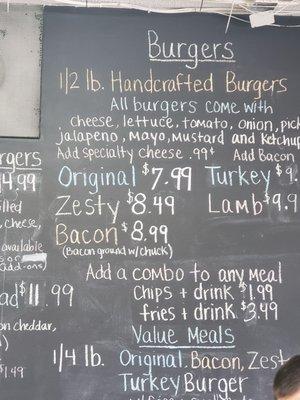 Burgers
1/2 lb. Handcrafted Burgers
All burgers come with
cheese, lettuce, tomato, onion,
jalapeno, Mayo, Mustard and Ketchup
Add specialty cheese .99¢ Add Bacon
Original $7.99 Turkey $9.
Zesty $8.49 Lamb $9.9
Bacon $8.99
(Bacon ground w/chuck)
Add a combo to any meal
Chips + drink $1.99
fries + drink $3.49
Value Meals
1/4 lb. Original, Bacon, Zest
Turkey Burger
rgers
$4.99
illed
cheese,
available
add-ons)
ad $11.99
on cheddar,
$1.49